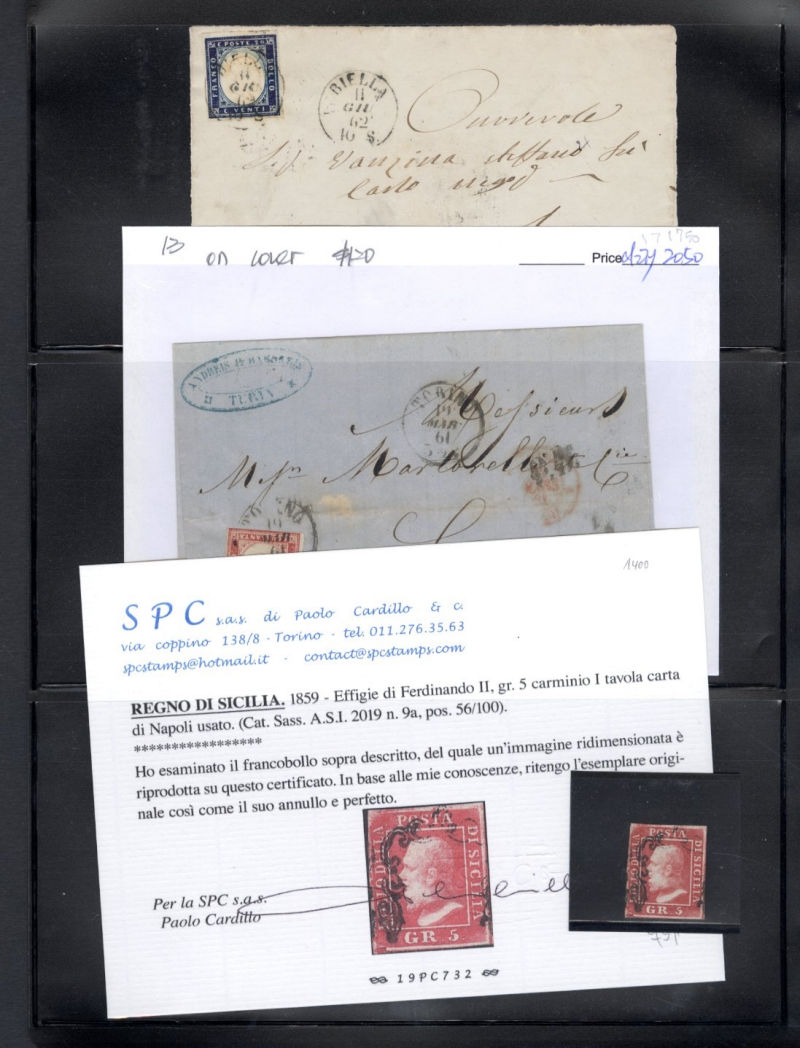 C. POSTE 20
FRANCO
BOLLO
C VENTI
BIELLA
11
GIU
62
10 S.
Onorevole
Sigr Vanzina Steffano fu
Carlo negoz
13 on cover $120
Price 2050
ANDREIS
TURIN
TORINO
19
MAR
61
Messieurs
Mrs Martorelli & Cie
TORINO
19
MAR
61
1400
SPC s.a.s. di Paolo Cardillo & c.
via coppino 138/8 - Torino - tel. 011.276.35.63
spcstamps@hotmail.it - contact@spcstamps.com
REGNO DI SICILIA. 1859 - Effigie di Ferdinando II, gr. 5 carminio I tavola carta
di Napoli usato. (Cat. Sass. A.S.I. 2019 n. 9a, pos. 56/100).
*****************
Ho esaminato il francobollo sopra descritto, del quale un'immagine ridimensionata è
riprodotta su questo certificato. In base alle mie conoscenze, ritengo l'esemplare origi-
nale così come il suo annullo e perfetto.
POSTA
BOLLO DELLA
DI SICILIA
GR. 5
POSTA
BOLLO DELLA
DI SICILIA
GR. 5
Per la SPC s.a.s.
Paolo Cardillo
19PC732